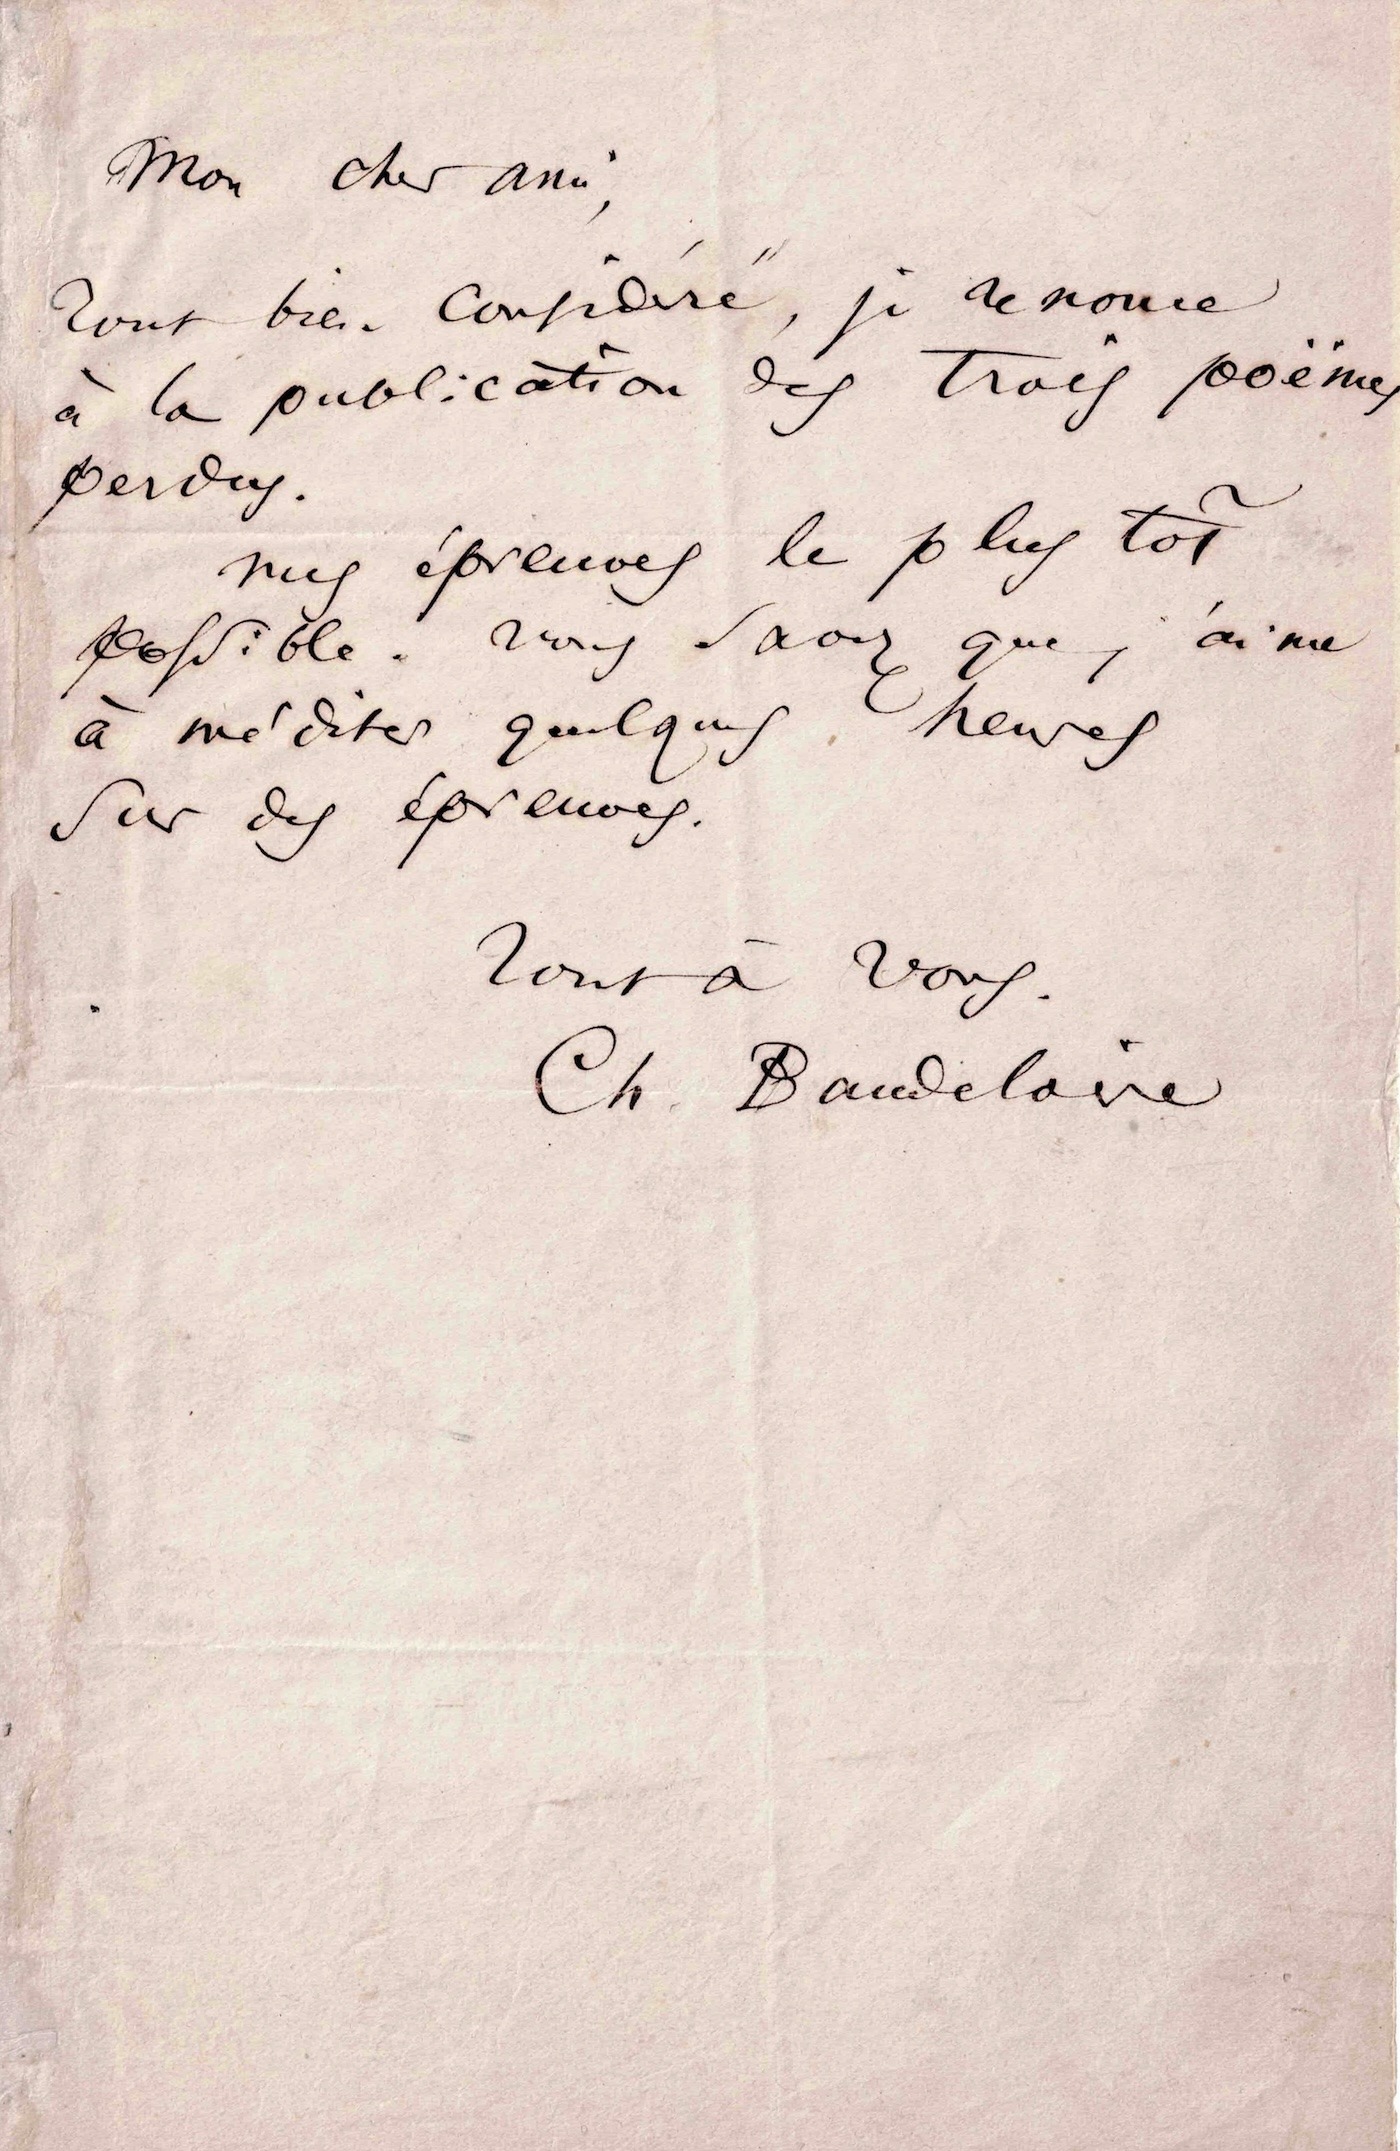 Mon cher ami,
Tout bien considéré, je renonce
à la publication des trois poëmes
perdus.
mes épreuves le plus tôt
possible. Vous savez que j'aime
à méditer quelques heures
sur des épreuves.
Tout à vous.
Ch. Baudelaire